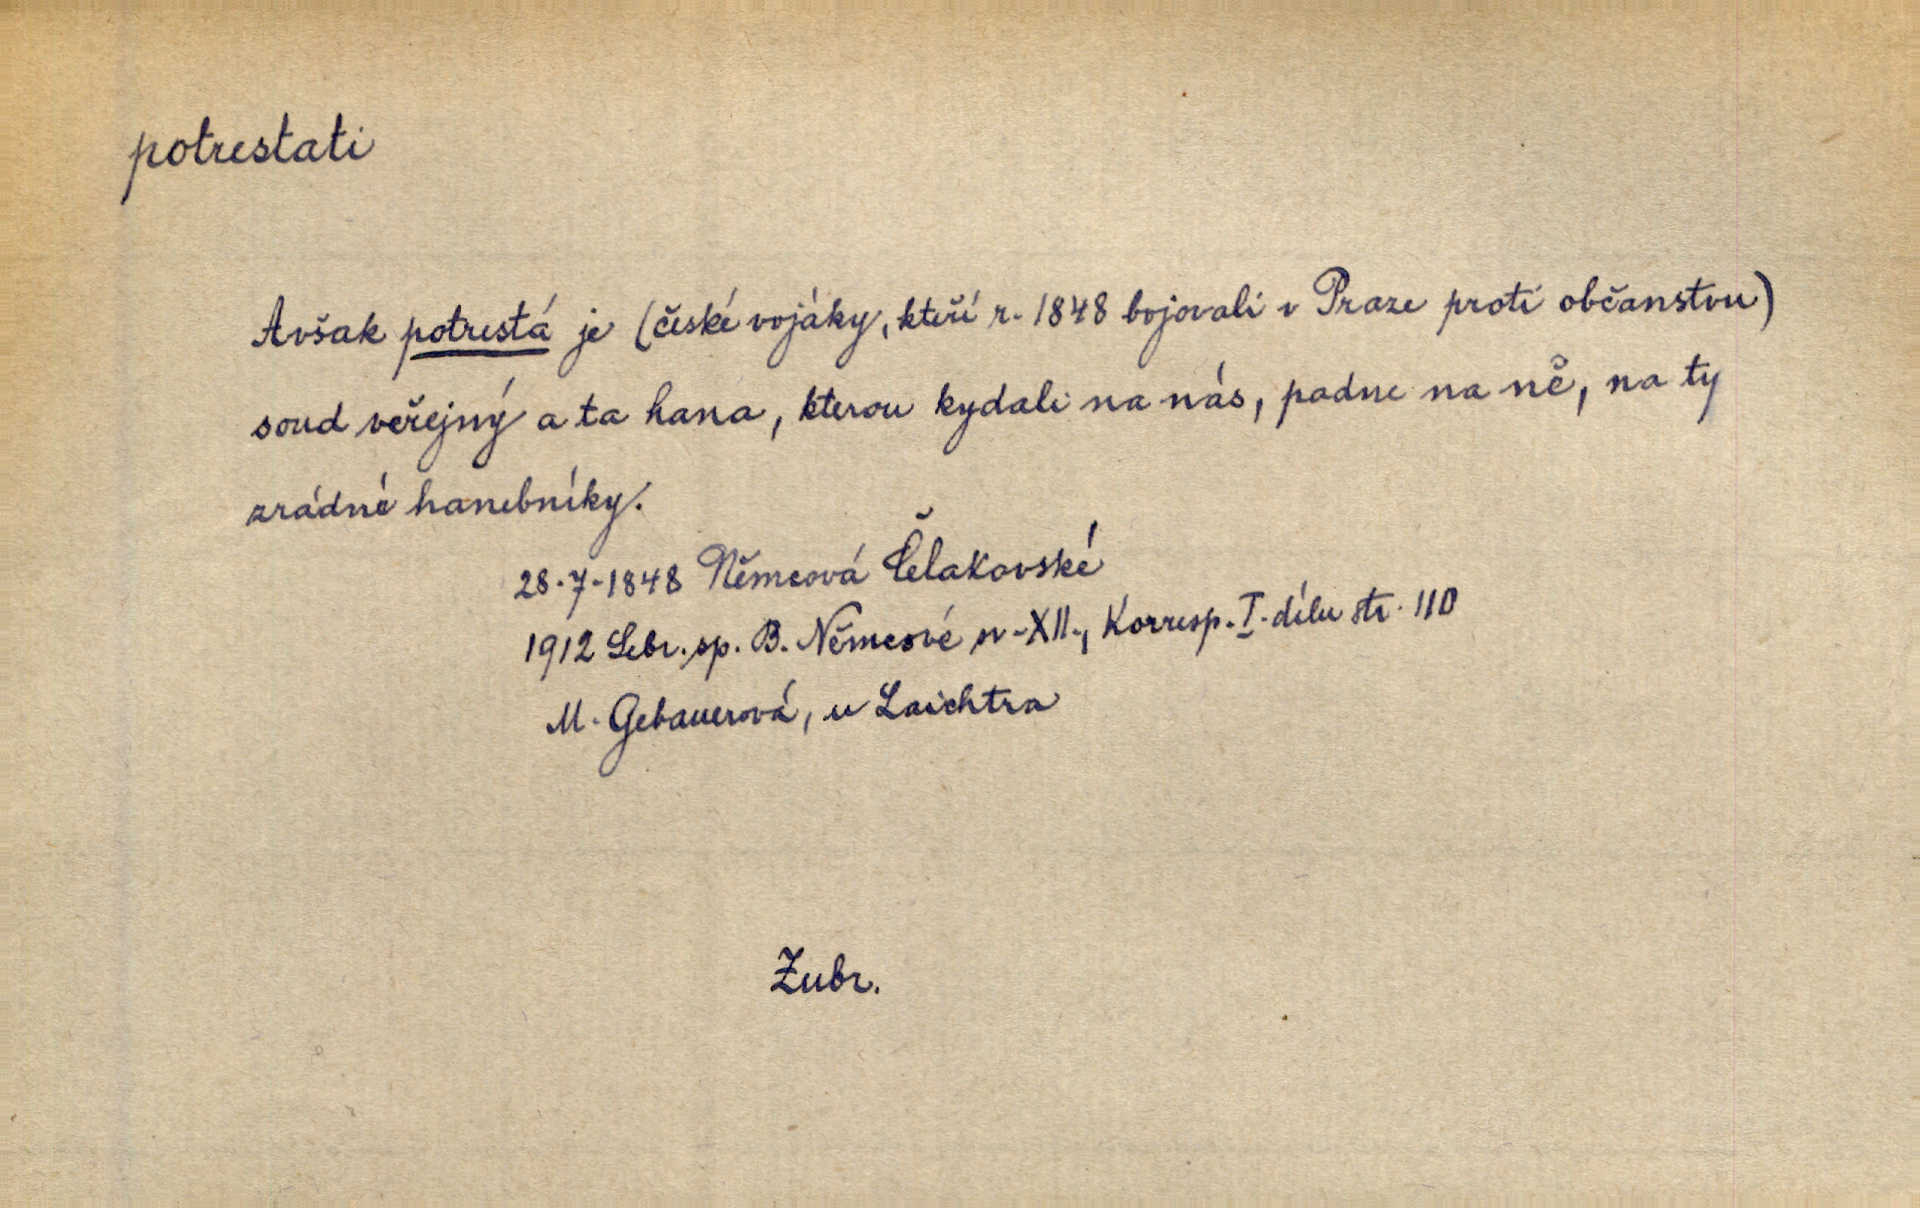 potrestati
Avšak potrestá je (české vojáky, kteří r. 1848 bojovali v Praze proti občanstvu)
soud veřejný a ta hana, kterou kydali na nás, padne na ně, na ty
zrádné hanebníky.
28.7.1848 Němcová Čelakovské
1912 Sebr. sp. B. Němcové sv. XII., Korresp. I. dílu str. 110
M. Gebauerová, u Laichtra
Zubr.